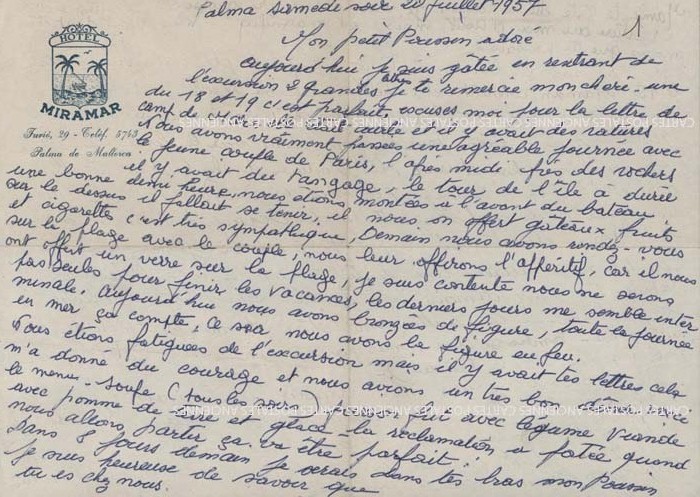 Palma samedi soir 20 juillet 1957
1
HOTEL
MIRAMAR
29 - Teléf. 5743
Palma de Mallorca
Mon petit Poussin adoré
aujourd'hui je suis gâtée en rentrant de
l'excursion 2 grandes je te remercie mon chéri - une
du 18 et 19 c'est parfait excuses moi pour la lettre du
camp et il y avait des ratures
Nous avons vraiment passées une agréable journée avec
le jeune couple de Paris, l'après midi près des rochers
il y avait du tangage, le tour de l'île à durée
une bonne demi heure, nous étions montées à l'avant du bateau
sur le dessus il fallait se tenir, il nous on offert gâteaux fruits
et cigarettes c'est très sympathique, Demain nous avons rendez-vous
sur la plage avec le couple, nous leur offrirons l'appéritif, car il nous
ont offert un verre sur la plage, je suis contente nous ne serons
pas seules pour finir les vacances, les derniers jours me semble inter-
minable. aujourd'hui nous avons bronzées de figure, toute la journée
en mer ça compte, ce soir nous avons la figure en feu.
Nous étions fatiguées de l'excursion mais il y avait tes lettres cela
m'a donné du courage et nous avions un très bon dîner voici
le menu - Soupe (tous les soirs) avec légume Viande
avec pomme de terre et glace - la réclamation a quand
nous allons partir ça va être parfait.
Dans 8 jours demain je serais dans tes bras mon Poussin
je suis heureuse de savoir que
tu es chez nous.
CARTES POSTALES ANCIENNES
CARTES POSTALES ANCIENNES